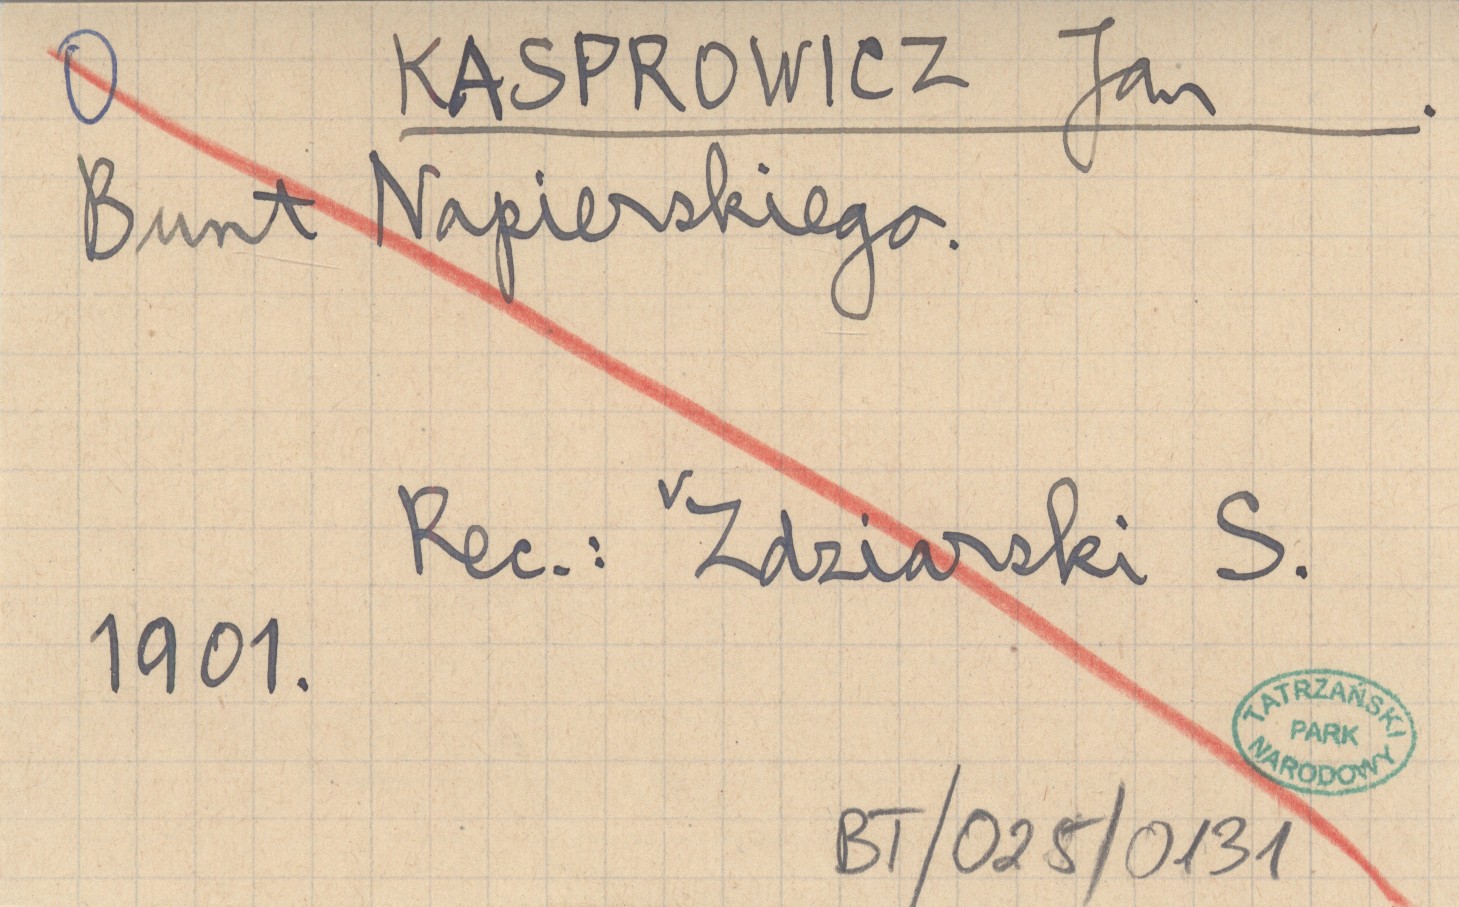 O KASPROWICZ Jan.
Bunt Napierskiego.
Rec.: v Zdziarski S.
1901.
TATRZAŃSKI
PARK
NARODOWY
BT/025/0131